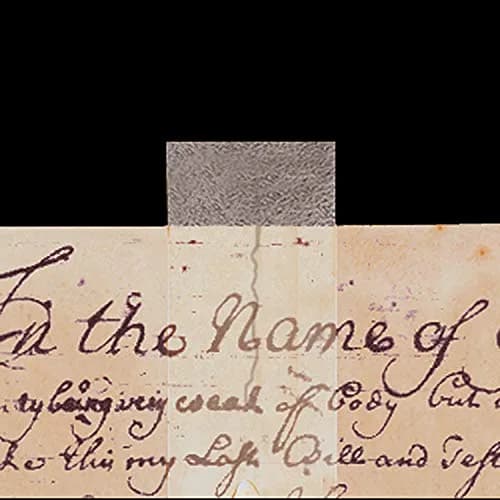 In the Name of
ty being very weak of Body but
this my Last Will and Test